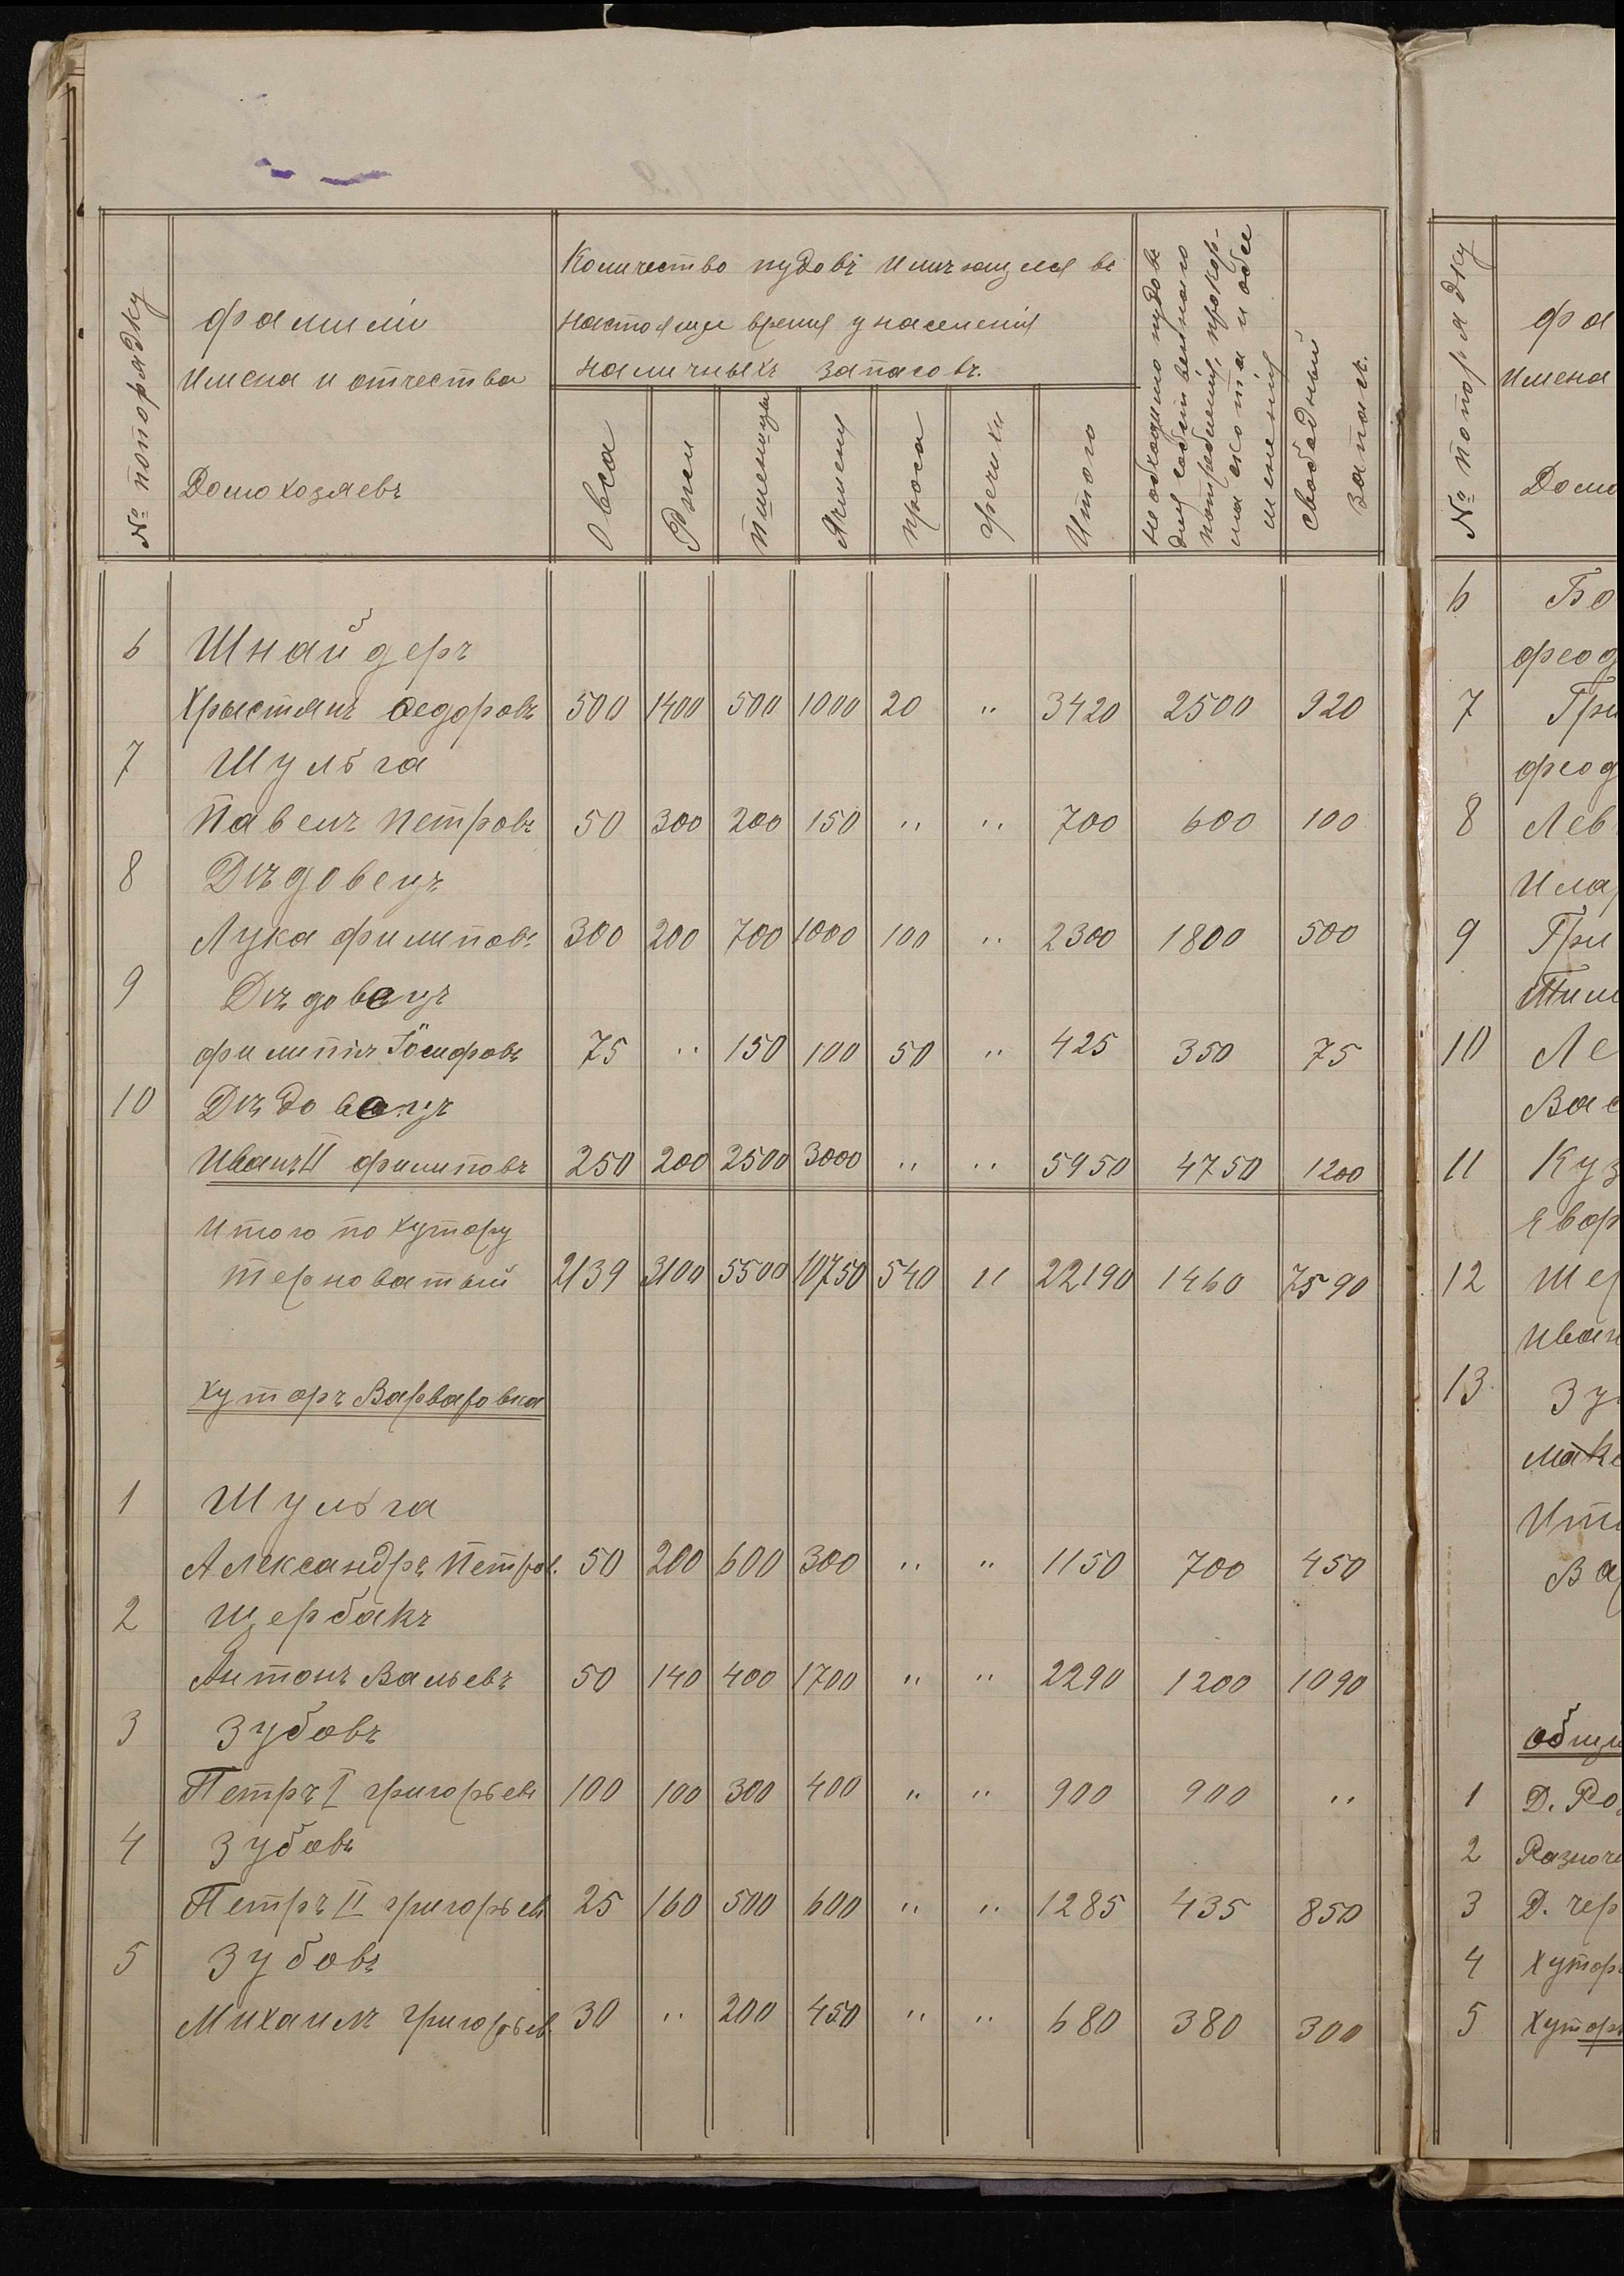 № по порядку
Фамиліи
Имена и отчества
Домохозяевъ
Количество пудовъ имѣющихся въ
настоящее время у населенія
наличныхъ запасовъ.
Овса
Ржи
Пшеницы
Ячменя
проса
гречихи
Итого
необходимо пудовъ
для собственнаго
потребленія, прокор-
ма скота и обсе
мененія
свободный
запасъ.
6 Шнайдеръ
Хрыстянъ Федоровъ 500 1400 500 1000 20 " 3420 2500 920
7 Шульга
Павелъ Петровъ 50 300 200 150 " " 700 600 100
8 Дѣдовецъ
Лука Филиповъ 300 200 700 1000 100 " 2300 1800 500
9 Дѣдовецъ
Филипъ Іосифовъ 75 " 150 100 50 " 425 350 75
10 Дѣдовецъ
Иванъ II Филиповъ 250 200 2500 3000 " " 5950 4750 1200
Итого по хутору
Терноватый 2139 3100 5500 10750 540 " 22190 1460 7590
Хуторъ Варваровка
1 Шульга
Александръ Петров. 50 200 600 300 " " 1150 700 450
2 Щербакъ
Антонъ 50 140 400 1700 " " 2290 1200 1090
3 Зубовъ
Петръ I Григорьевъ 100 100 300 400 " " 900 900 "
4 Зубовъ
Петръ II Григорьев 25 160 500 600 " " 1285 435 850
5 Зубовъ
Михаилъ Григорьев. 30 " 200 450 " " 680 380 300
№ по порядку
Фа
Имена
Домо
6 Бо
Феод
7 Гри
Феод
8 Лев
Илар
9 Гри
Тим
10 Ле
Вас
11 Куз
12 Шер
Иван
13 Зу
Маке
Ито
Вар
общи
1 Д. Ро
2 Разноч
3 Д. Чер
4 Хутор
5 Хуторъ